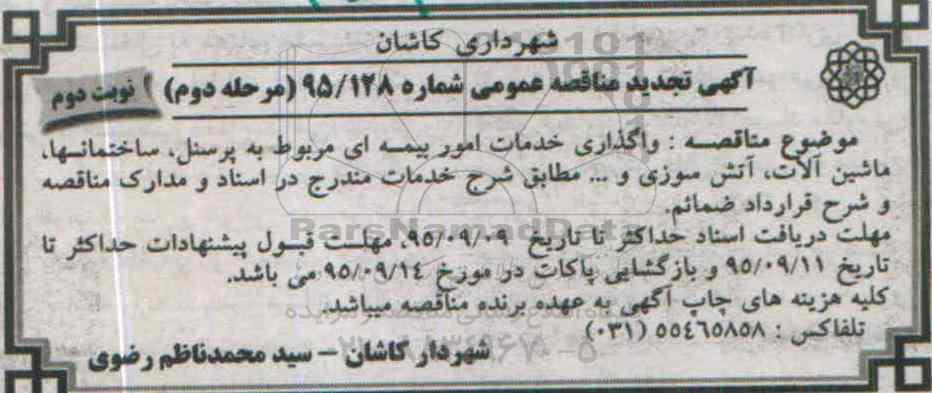 شهرداری کاشان
آگهی تجدید مناقصه عمومی شماره ۹۵/۱۲۸ (مرحله دوم)
نوبت دوم
موضوع مناقصه : واگذاری خدمات امور بیمه ای مربوط به پرسنل، ساختمانها،
ماشین آلات، آتش سوزی و ... مطابق شرح خدمات مندرج در اسناد و مدارک مناقصه
و شرح قرارداد ضمائم.
مهلت دریافت اسناد حداکثر تا تاریخ ۹۵/۰۹/۰۹، مهلت قبول پیشنهادات حداکثر تا
تاریخ ۹۵/۰۹/۱۱ و بازگشایی پاکات در مورخ ۹۵/۰۹/۱۴ می باشد.
کلیه هزینه های چاپ آگهی به عهده برنده مناقصه میباشد.
تلفاکس : ۵۵۴۶۵۸۵۸ (۰۳۱)
شهردار کاشان – سید محمدناظم رضوی
ParsNamadData